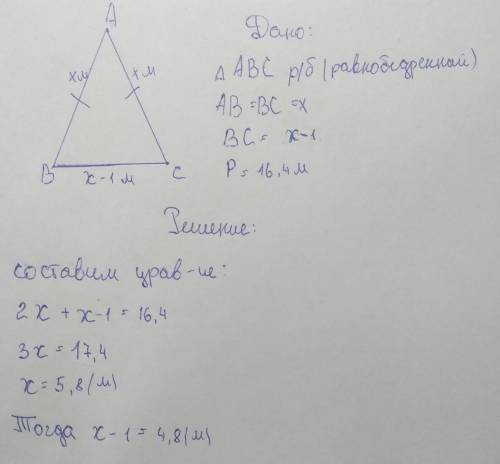 A
х м
х м
B
C
х-1 м
Дано:
Δ ABC р/б (равнобедренный)
AB = BC = x
BC = x-1
P = 16,4 м
Решение:
составим урав-ие:
2x + x-1 = 16,4
3x = 17,4
x = 5,8 (м)
Тогда x-1 = 4,8 (м)